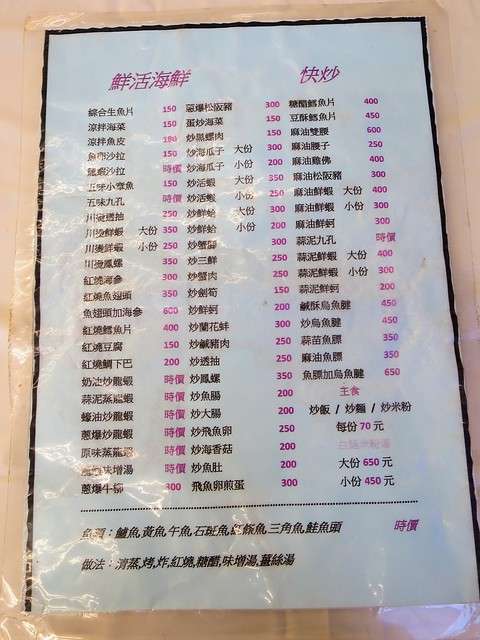 鮮活海鮮 快炒
綜合生魚片 150
涼拌海菜 150
涼拌魚皮
魚卵沙拉 150
龍蝦沙拉 時價
五味小章魚 150
五味九孔 時價
川燙透抽 250
川燙鮮蝦 大份 350
川燙鮮蝦 小份 250
川燙鳳螺 350
紅燒海參 300
紅燒魚翅頭 350
魚翅頭加海參 600
紅燒鱈魚片 400
紅燒豆腐 150
紅燒鯛下巴 200
奶油炒龍蝦 時價
蒜泥蒸龍蝦 時價
蠔油炒龍蝦 時價
蔥爆炒龍蝦 時價
原味蒸龍蝦 時價
味增湯 時價
蔥爆牛柳 300
蔥爆松阪豬 300
蛋炒海菜 150
炒黑螺肉
炒海瓜子 大份 300
炒海瓜子 小份 200
炒活蝦 大份 350
炒活蝦 小份 250
炒鮮蛤 大份 300
炒鮮蛤 小份 200
炒蟹腳
炒三鮮 250
炒蟹肉 250
炒劍筍 150
炒鮮蚵 200
炒蘭花蚌 300
炒鹹豬肉 250
炒透抽 250
炒鳳螺 350
炒魚腸 200
炒大腸 200
炒飛魚卵 250
炒海香菇 200
炒魚肚 200
飛魚卵煎蛋 300
糖醋鱈魚片 400
豆酥鱈魚片 450
麻油雙腰 600
麻油腰子 250
麻油雞佛 400
麻油松阪豬 300
麻油鮮蝦 大份 400
麻油鮮蝦 小份 300
麻油鮮蚵
蒜泥九孔 時價
蒜泥鮮蝦 大份 400
蒜泥鮮蝦 小份 300
蒜泥鮮蚵 200
鹹酥烏魚腱 450
炒烏魚腱 450
蒜苗魚膘 350
麻油魚膘 350
魚膘加烏魚腱 650
主食
炒飯 / 炒麵 / 炒米粉
每份 70 元
大份 650 元
小份 450 元
魚類：鱸魚,黃魚,午魚,石斑魚,紅條魚,三角魚,鮭魚頭 時價
做法：清蒸,烤,炸,紅燒,糖醋,味增湯,薑絲湯